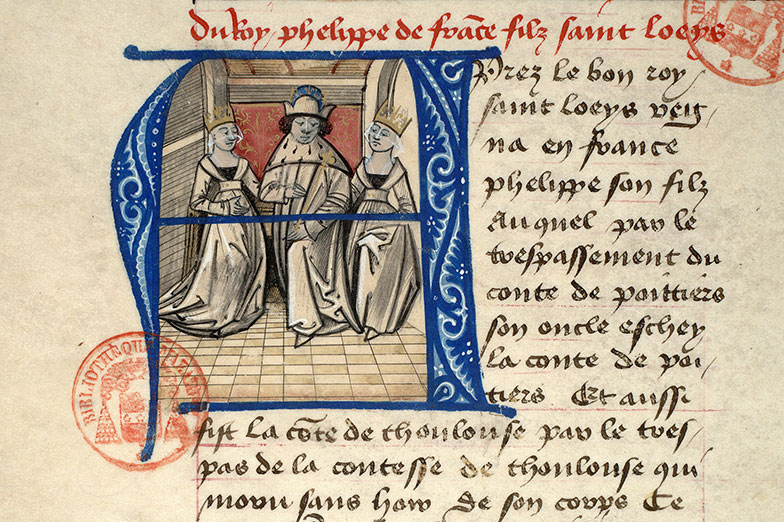 du Roy phelippe de frāce filz saint loeys
Aprez le bon roy
saint loeys reig
na en france
phelippe son filz
Auquel par le
trespassement du
conte de poittiers
son oncle eschey
la conte de poi-
tiers Et aussi
fist la cōte de thoulouse par le tres-
pas de la contesse de thoulouse qui
moru sans hoir de son corps Ce
BIBLIOTHÈQUE